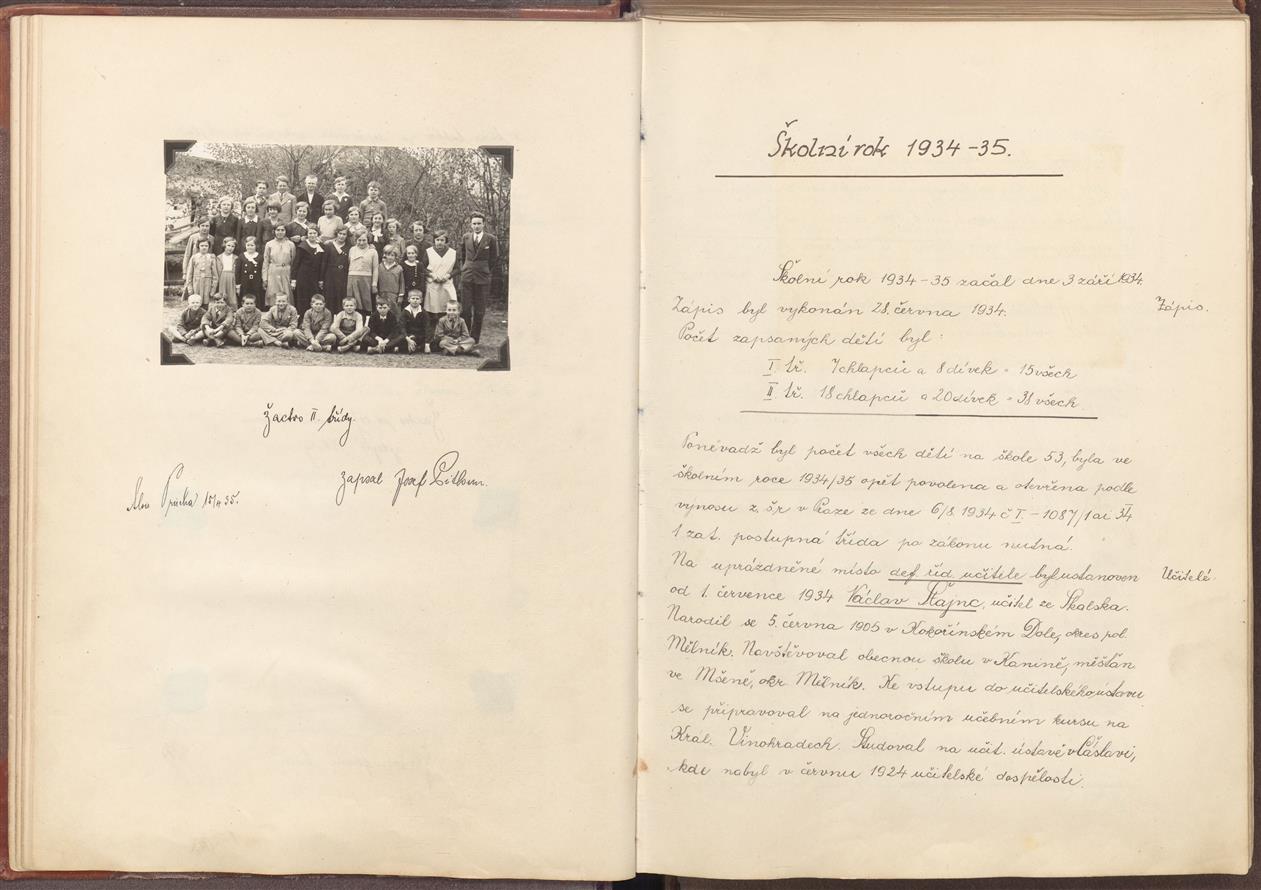 Žactvo II. třídy.
Zapsal Josef
Školní rok 1934-35.
Školní rok 1934-35 začal dne 3 září 1934.
Zápis byl vykonán 28. června 1934.
Zápis.
Počet zapsaných dětí byl:
I. tř. 7 chlapců a 8 dívek = 15 všech
II. tř. 18 chlapců a 20 dívek = 38 všech
Poněvadž byl počet všech dětí na škole 53, byla ve
školním roce 1934/35 opět povolena a otevřena podle
výnosu z. š. r. v Praze ze dne 6/8. 1934 č I - 1087/1 ai 34
1 zat. postupná třída po zákonu nutná.
Na uprázdněné místo def. říd. učitele byl ustanoven
Učitelé.
od 1. července 1934 Václav Štajnc, učitel ze Skalska.
Narodil se 5. června 1905 v Kokořínském Dole, okres pol.
Mělník. Navštěvoval obecnou školu v Kanině, měšťan
ve Mšeně, okr. Mělník. Ke vstupu do učitelského ústavu
se připravoval na jednoročním učebném kursu na
Král. Vinohradech. Studoval na učit. ústavě v Čáslavi,
kde nabyl v červnu 1924 učitelské dospělosti.